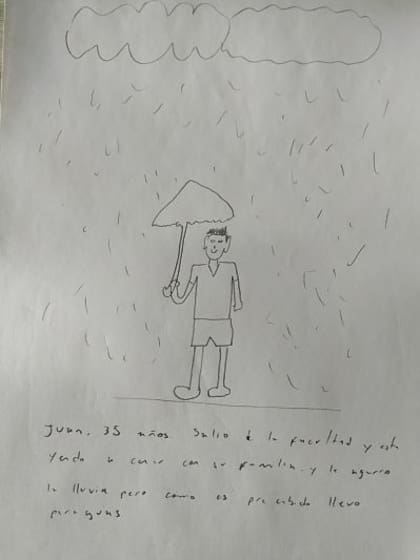 Juan, 35 años salio de la facultad y esta
yendo a cenar con su familia, y lo agarro
la lluvia pero como es precabido llevo
paraguas